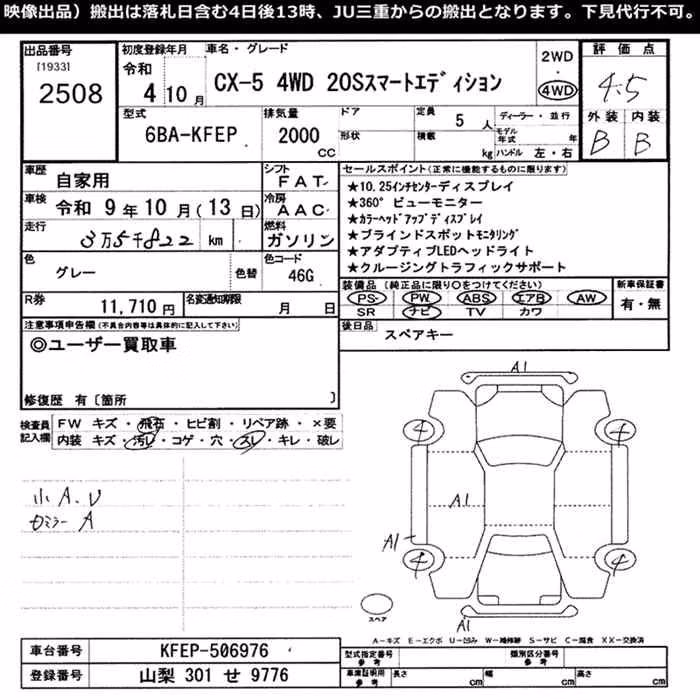 映像出品）搬出は落札日含む4日後13時、JU三重からの搬出となります。下見代行不可。
出品番号
[1933]
2508
初度登録年月
令和
4 10 月
車名・グレード
CX-5 4WD 20Sスマートエディション
2WD
・
4WD
評価点
4.5
外装 内装
B B
型式
6BA-KFEP
排気量
2000
CC
ドア
形状
定員
5 人
積載
kg
ディーラー・並行
モデル年式 年
ハンドル 左・右
車歴
自家用
シフト
FAT
車検
令和 9 年 10 月(13 日)
冷房
AAC
走行
3万5千822 km
燃料
ガソリン
色
グレー
色替
色コード
46G
R券
11,710 円
名変通知期限
月 日
セールスポイント(正常に機能するものに限ります)
★10.25インチセンターディスプレイ
★360° ビューモニター
★カラーヘッドアップディスプレイ
★ブラインドスポットモニタリング
★アダプティブLEDヘッドライト
★クルージングトラフィックサポート
装備品(純正品に限り○をつけてください)
PS・ PW・ ABS・ エアB・ AW・
SR ナビ・ TV カワ
新車保証書
有・無
後日品
スペアキー
注意事項申告欄(不具合内容等は具体的に記入して下さい)
◎ユーザー買取車
修復歴 有〔箇所 〕
検査員記入欄
FW キズ・飛石・ヒビ割・リペア跡・×要
内装 キズ・汚レ・コゲ・穴・スレ・キレ・破レ
小A.U
A
A1
4 4
A1
A1
4 4
A1
スペア
A-キズ E-エクボ U-凹み W-補修跡 S-サビ C-腐食 XX-交換済
車台番号
KFEP-506976
登録番号
山梨 301 せ 9776
型式指定番号
参考
類別区分番号
参考
車庫証明用
参考
長さ cm
幅 cm
高さ cm